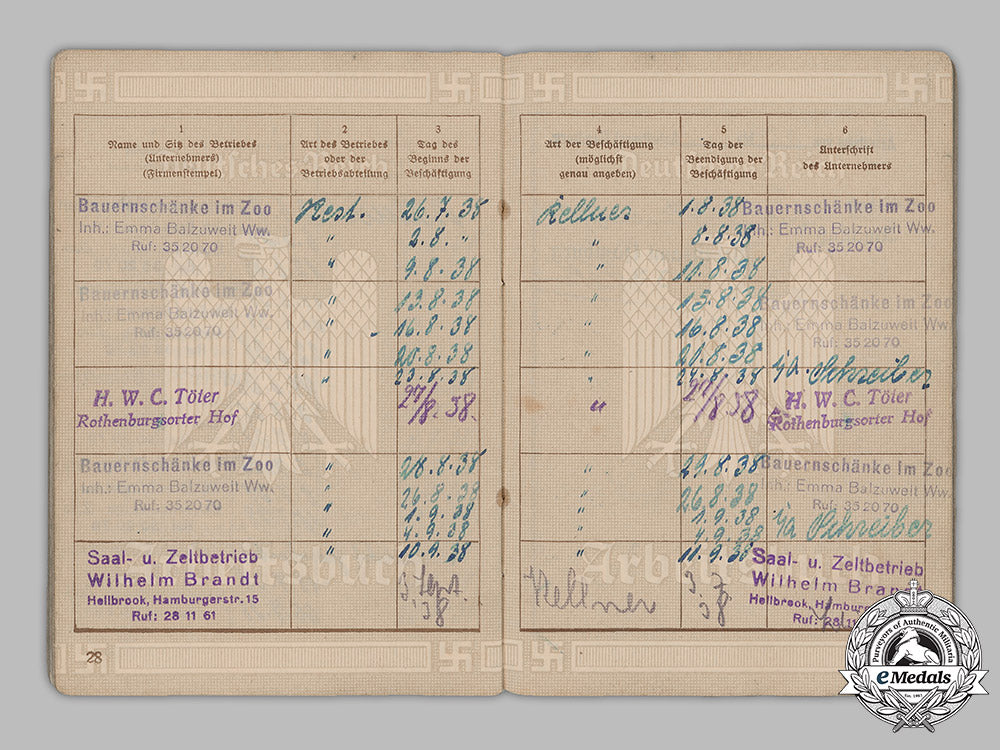 1
Name und Sitz des Betriebes
(Unternehmers)
(Firmenstempel)
2
Art des Betriebes
oder der
Betriebsabteilung
3
Tag des
Beginns der
Beschäftigung
Deutsches Reich
Bauernschänke im Zoo
Inh.: Emma Balzuweit Ww.
Ruf: 35 20 70
Rest. 26.7.38
" 2.8. "
" 9.8.38
Bauernschänke im Zoo
Inh.: Emma Balzuweit Ww.
Ruf: 35 20 70
" 13.8.38
" 16.8.38
" 20.8.38
" 23.8.38
H. W. C. Töter
Rothenburgsorter Hof
27/8.38.
Bauernschänke im Zoo
Inh.: Emma Balzuweit Ww.
Ruf: 35 20 70
" 28.8.38
" 26.8.38
" 1.9.38
" 4.9.38
Saal- u. Zeltbetrieb
Wilhelm Brandt
Hellbrook, Hamburgerstr. 15
Ruf: 28 11 61
" 10.9.38
3 Sept.
38
Arbeitsbuch
28
4
Art der Beschäftigung
(möglichst
genau angeben)
5
Tag der
Beendigung der
Beschäftigung
6
Unterschrift
des Unternehmers
Deutsches Reich
Kellner 1.8.38
" 8.8.38
" 11.8.38
Bauernschänke im Zoo
Inh.: Emma Balzuweit Ww.
Ruf: 35 20 70
" 15.8.38
" 16.8.38
" 21.8.38
" 24.8.38
Bauernschänke im Zoo
Inh.: Emma Balzuweit Ww.
Ruf: 35 20 70
i/A. Schreiber
" 27/8 38
H. W. C. Töter
Rothenburgsorter Hof
" 29.8.38
" 26.8.38
" 1.9.38
" 4.9.38
Bauernschänke im Zoo
Inh.: Emma Balzuweit Ww.
Ruf: 35 20 70
i/A Schreiber
" 11.9.38
Kellner
38
Saal- u. Zeltbetrieb
Wilhelm Brandt
Hellbrook, Hamburg
Ruf: 28 11
Arbeitsbuch
Purveyors of Authentic Militaria
eMedals